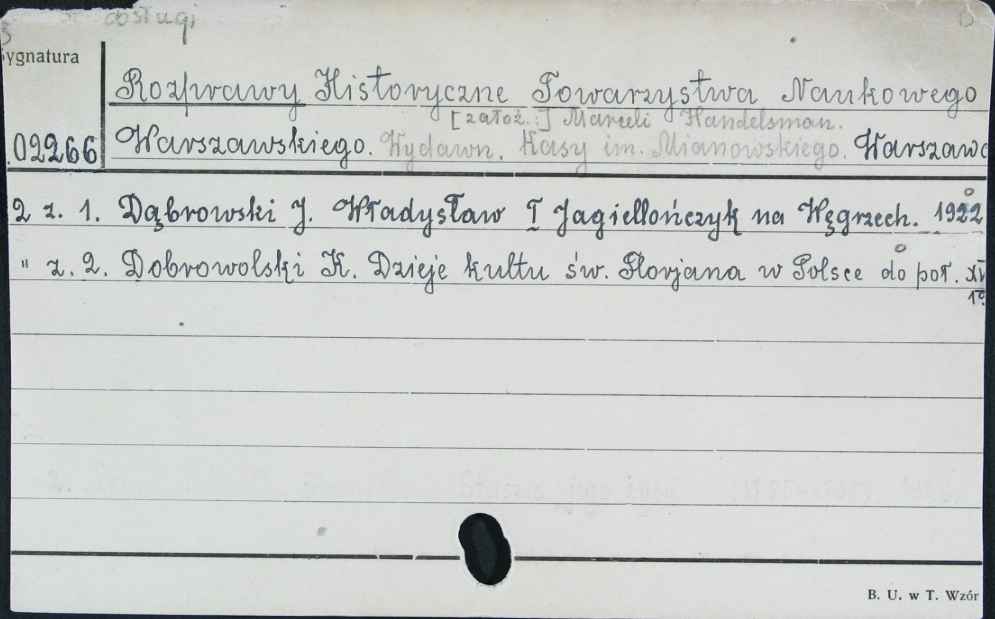 obsługi
ygnatura
Rozprawy Historyczne Towarzystwa Naukowego
[załoz.:] Marceli Handelsman.
02266 Warszawskiego. Wydawn. Kasy im. Mianowskiego. Warszawa
2 z. 1. Dąbrowski J. Władysław I Jagiellończyk na Węgrzech. 1922
" z. 2. Dobrowolski K. Dzieje kultu św. Florjana w Polsce do poł. XV
19
B. U. w T. Wzór